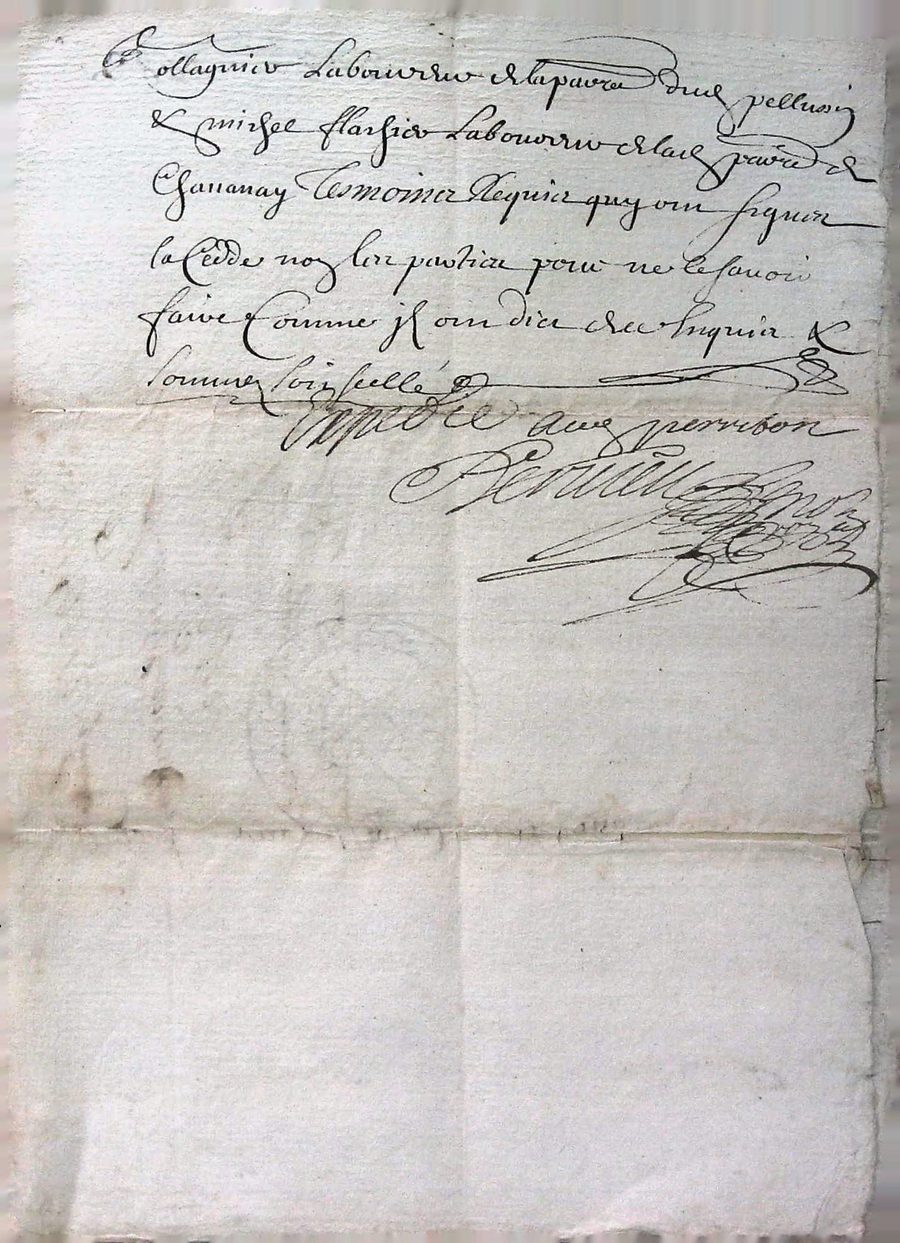 Collagnier Laboureur de la parre dud pellussin
& michel flachier Laboureur de lad parre de
Chavanay Tesmoins Requis quy ont signez
la Cedde non les parties pour ne le savoir
faire Comme ils ont dict de ce Inquis &
sommez soit scellé
Expedie aud perribon